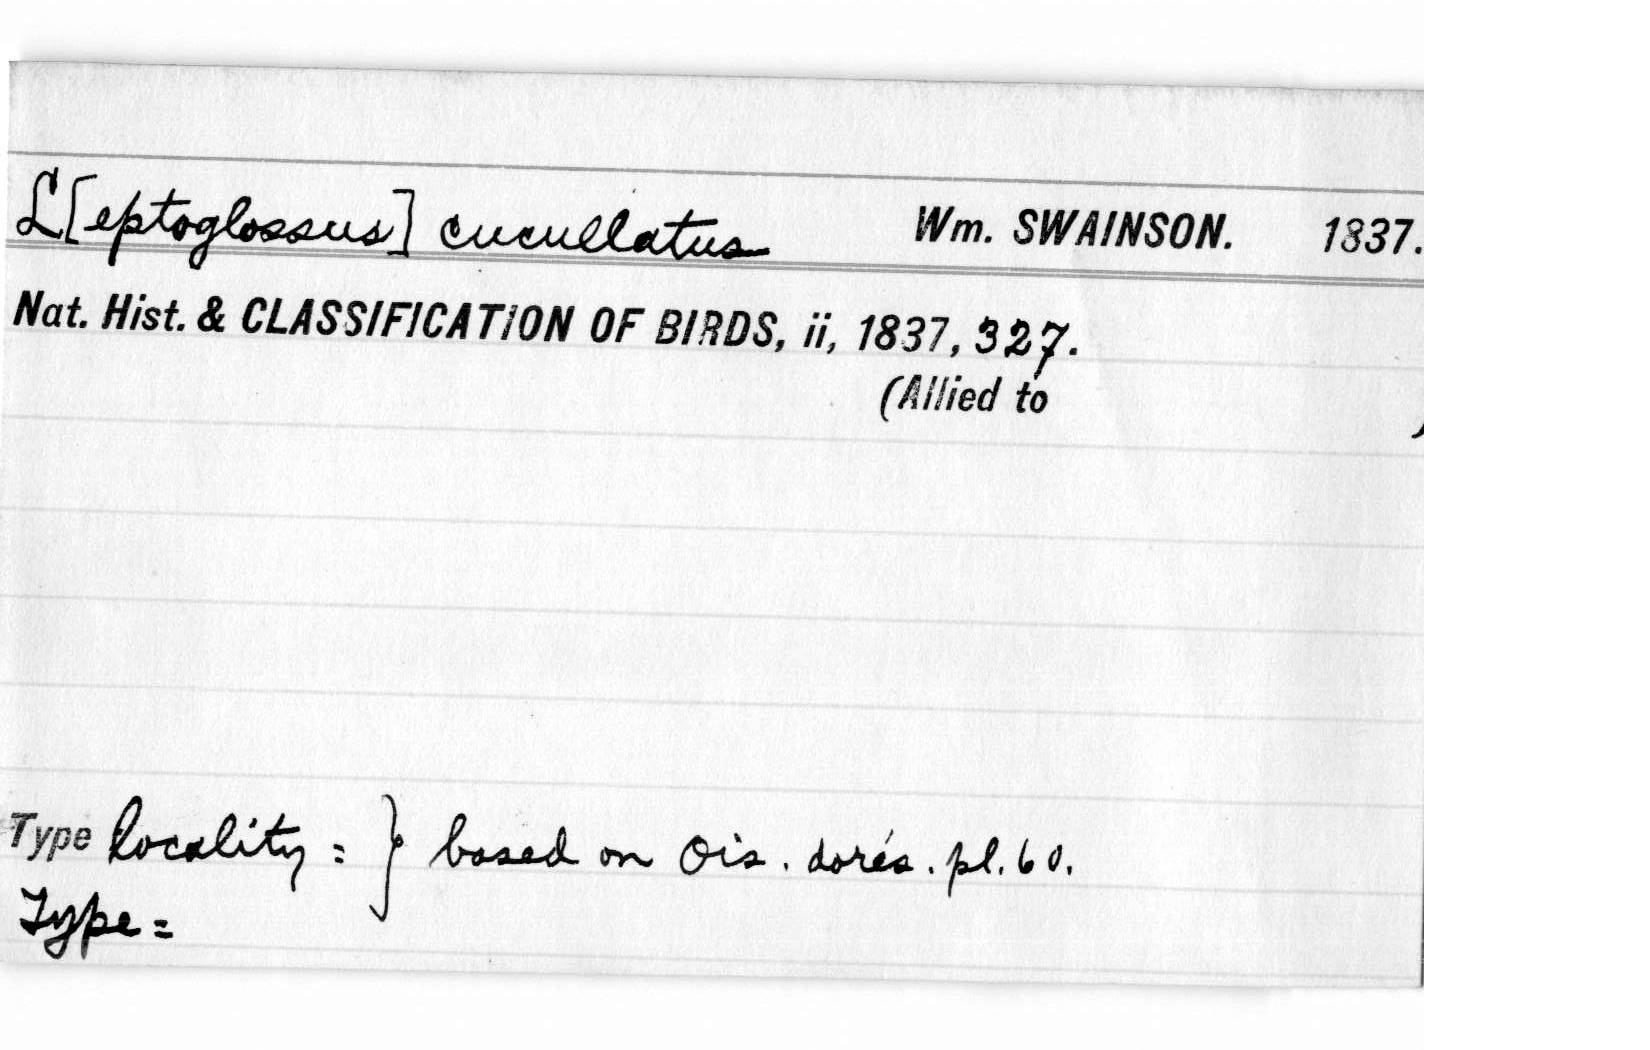 L[eptoglossus] cucullatus Wm. SWAINSON. 1837.
Nat. Hist. & CLASSIFICATION OF BIRDS, ii, 1837, 327.
(Allied to )
Type locality = } based on Ois. dorés. pl. 60.
Type =